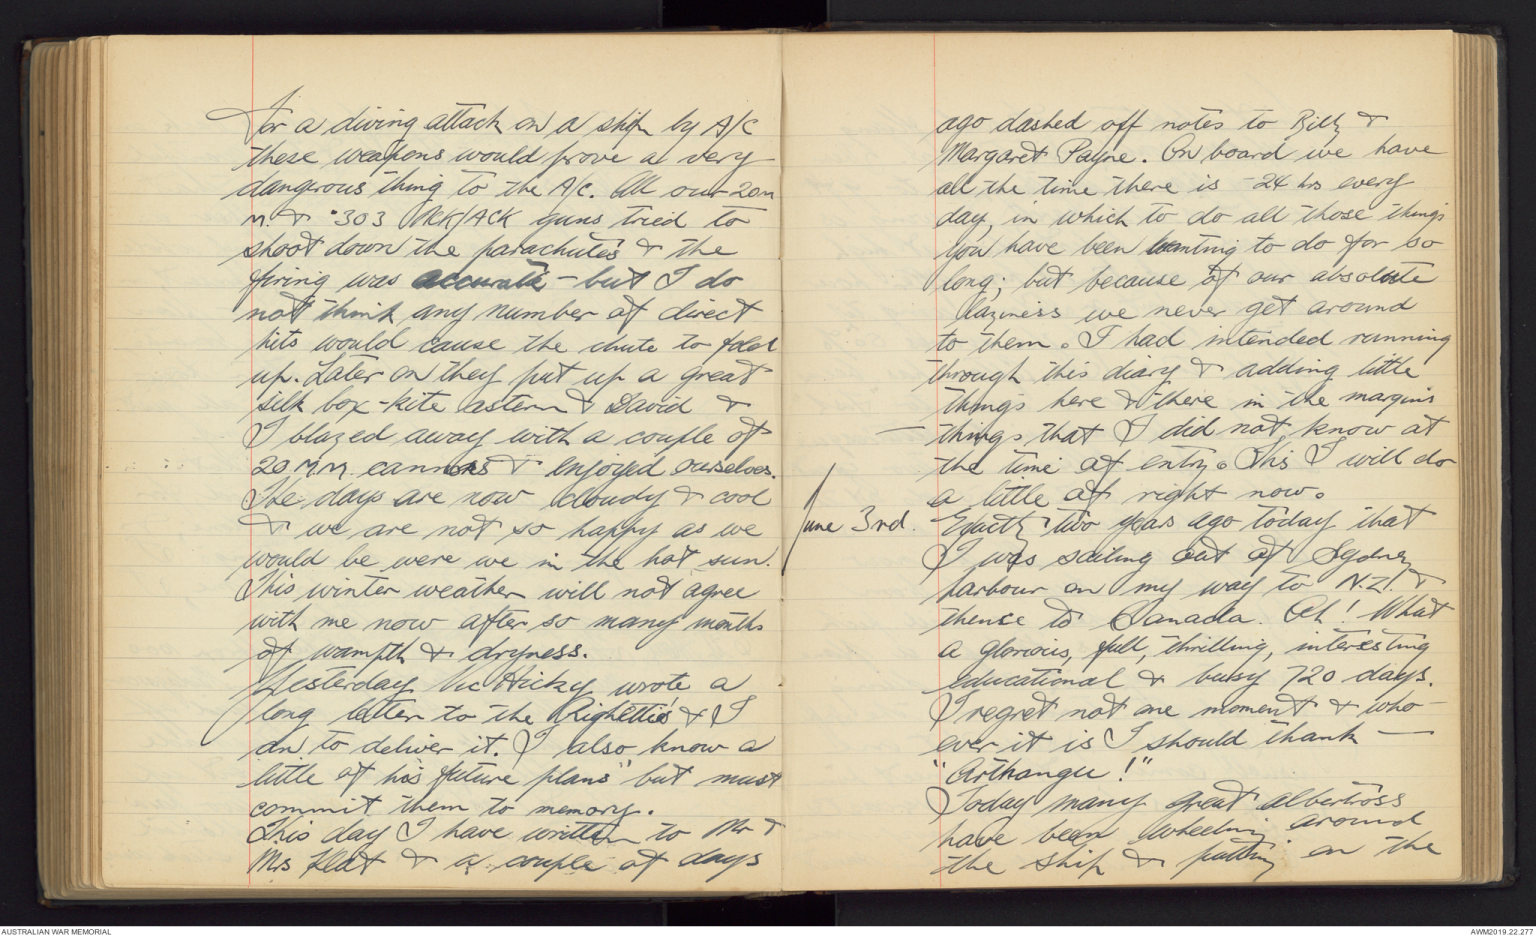 For a diving attack on a ship by A/C
these weapons would prove a very
dangerous thing to the A/c. All our 20m
m. & .303 AKK/ACK guns tried to
shoot down the parachutes & the
firing was accurate - but I do
not think any number of direct
hits would cause the chute to fold
up. Later on they put up a great
silk box-kite astern & David &
I blazed away with a couple of
20 M.M. cannons & enjoyed ourselves.
The days are now cloudy & cool
& we are not so happy as we
would be were we in the hot sun.
This winter weather will not agree
with me now after so many months
of warmpth & dryness.
Yesterday Vic Hicky wrote a
long letter to the Righetties & I
am to deliver it. I also know a
little of his future plans" but must
commit them to memory.
This day I have written to Mr &
Mrs Flatt & a couple of days
ago dashed off notes to Billy &
Margaret Payne. On board we have
all the time there is - 24 hrs every
day, in which to do all those things
you have been wanting to do for so
long; but because of our absolute
laziness we never get around
to them. I had intended running
through this diary & adding little
things here & there in the margins
- things that I did not know at
the time of entry. This I will do
a little of right now.
June 3rd. Exactly two yeas ago today that
I was sailing out of Sydney
harbour on my way to N.Z! &
thence to Canada. Ah! What
a glorious, full, thrilling, interesting
educational & busy 720 days.
I regret not one moment & who-
ever it is I should thank -
"Arthangu!"
Today many great albertross
have been wheeling around
the ship & putting on the
AUSTRALIAN WAR MEMORIAL
AWM2019.22.277